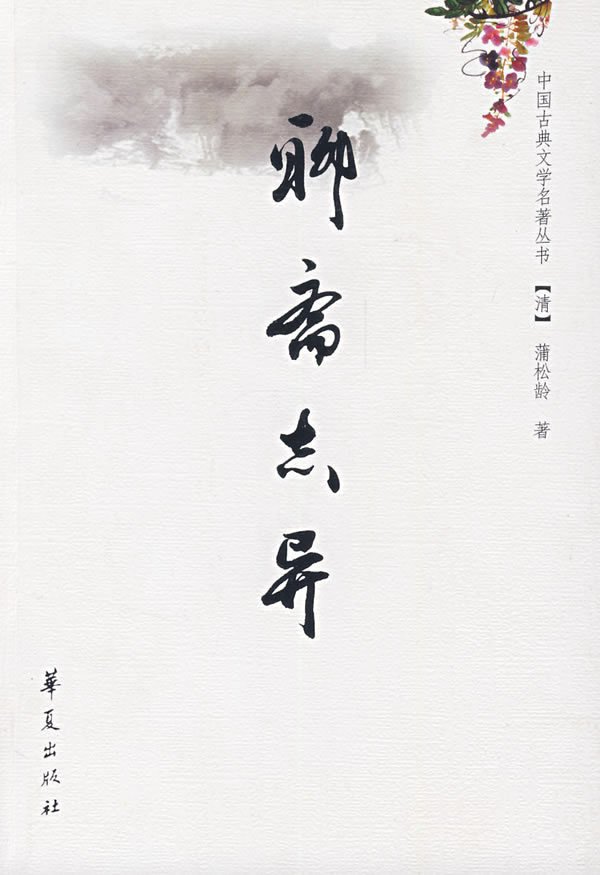 中国古典文学名著丛书 【清】 蒲松龄 著
聊斋志异
華夏出版社